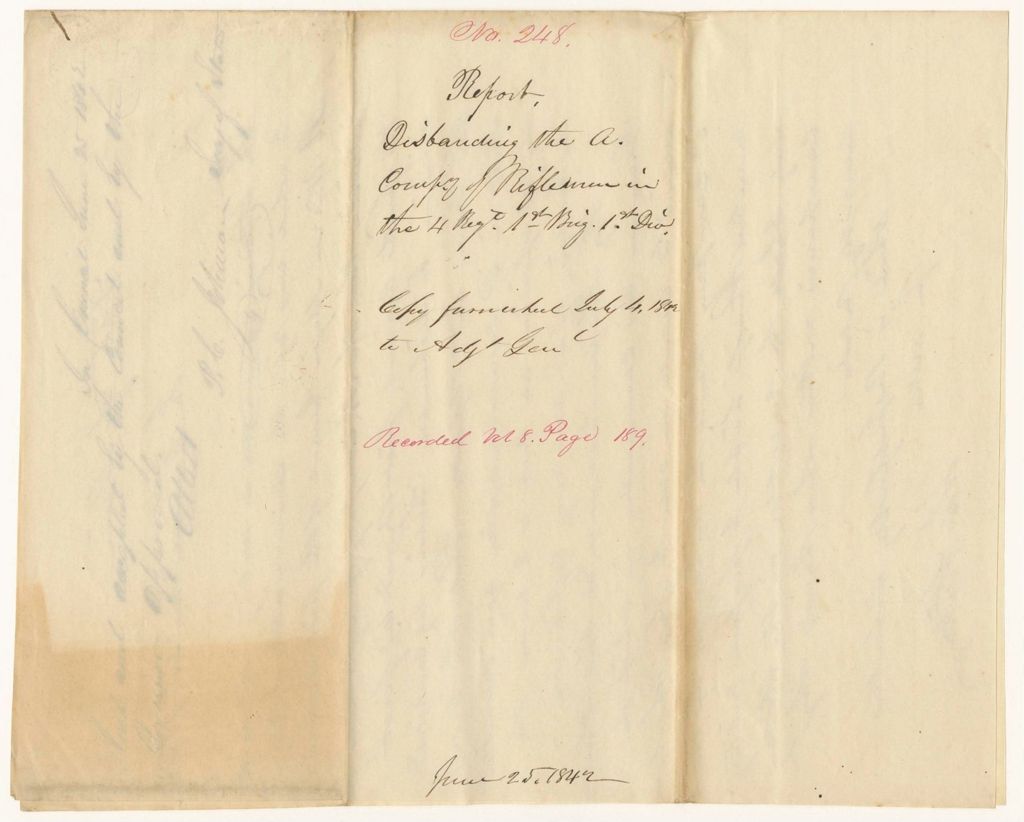 No. 248.
Report,
Disbanding the A.
Compy of Riflemen in
the 4 Regt. 1st Brig. 1st Div.
Copy furnished July 4, 1842
to Adjt Genl
Recorded Vol 8. Page 189.
June 25, 1842
In Council June 25 1842
Read and accepted by the Council and by the
Governor approved.
Attest
P. C. Johnson Secy of State